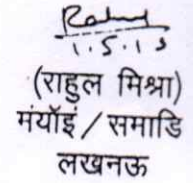 Rahul
1.5.13
(राहुल मिश्रा)
मंयॉइं / समाडि
लखनऊ